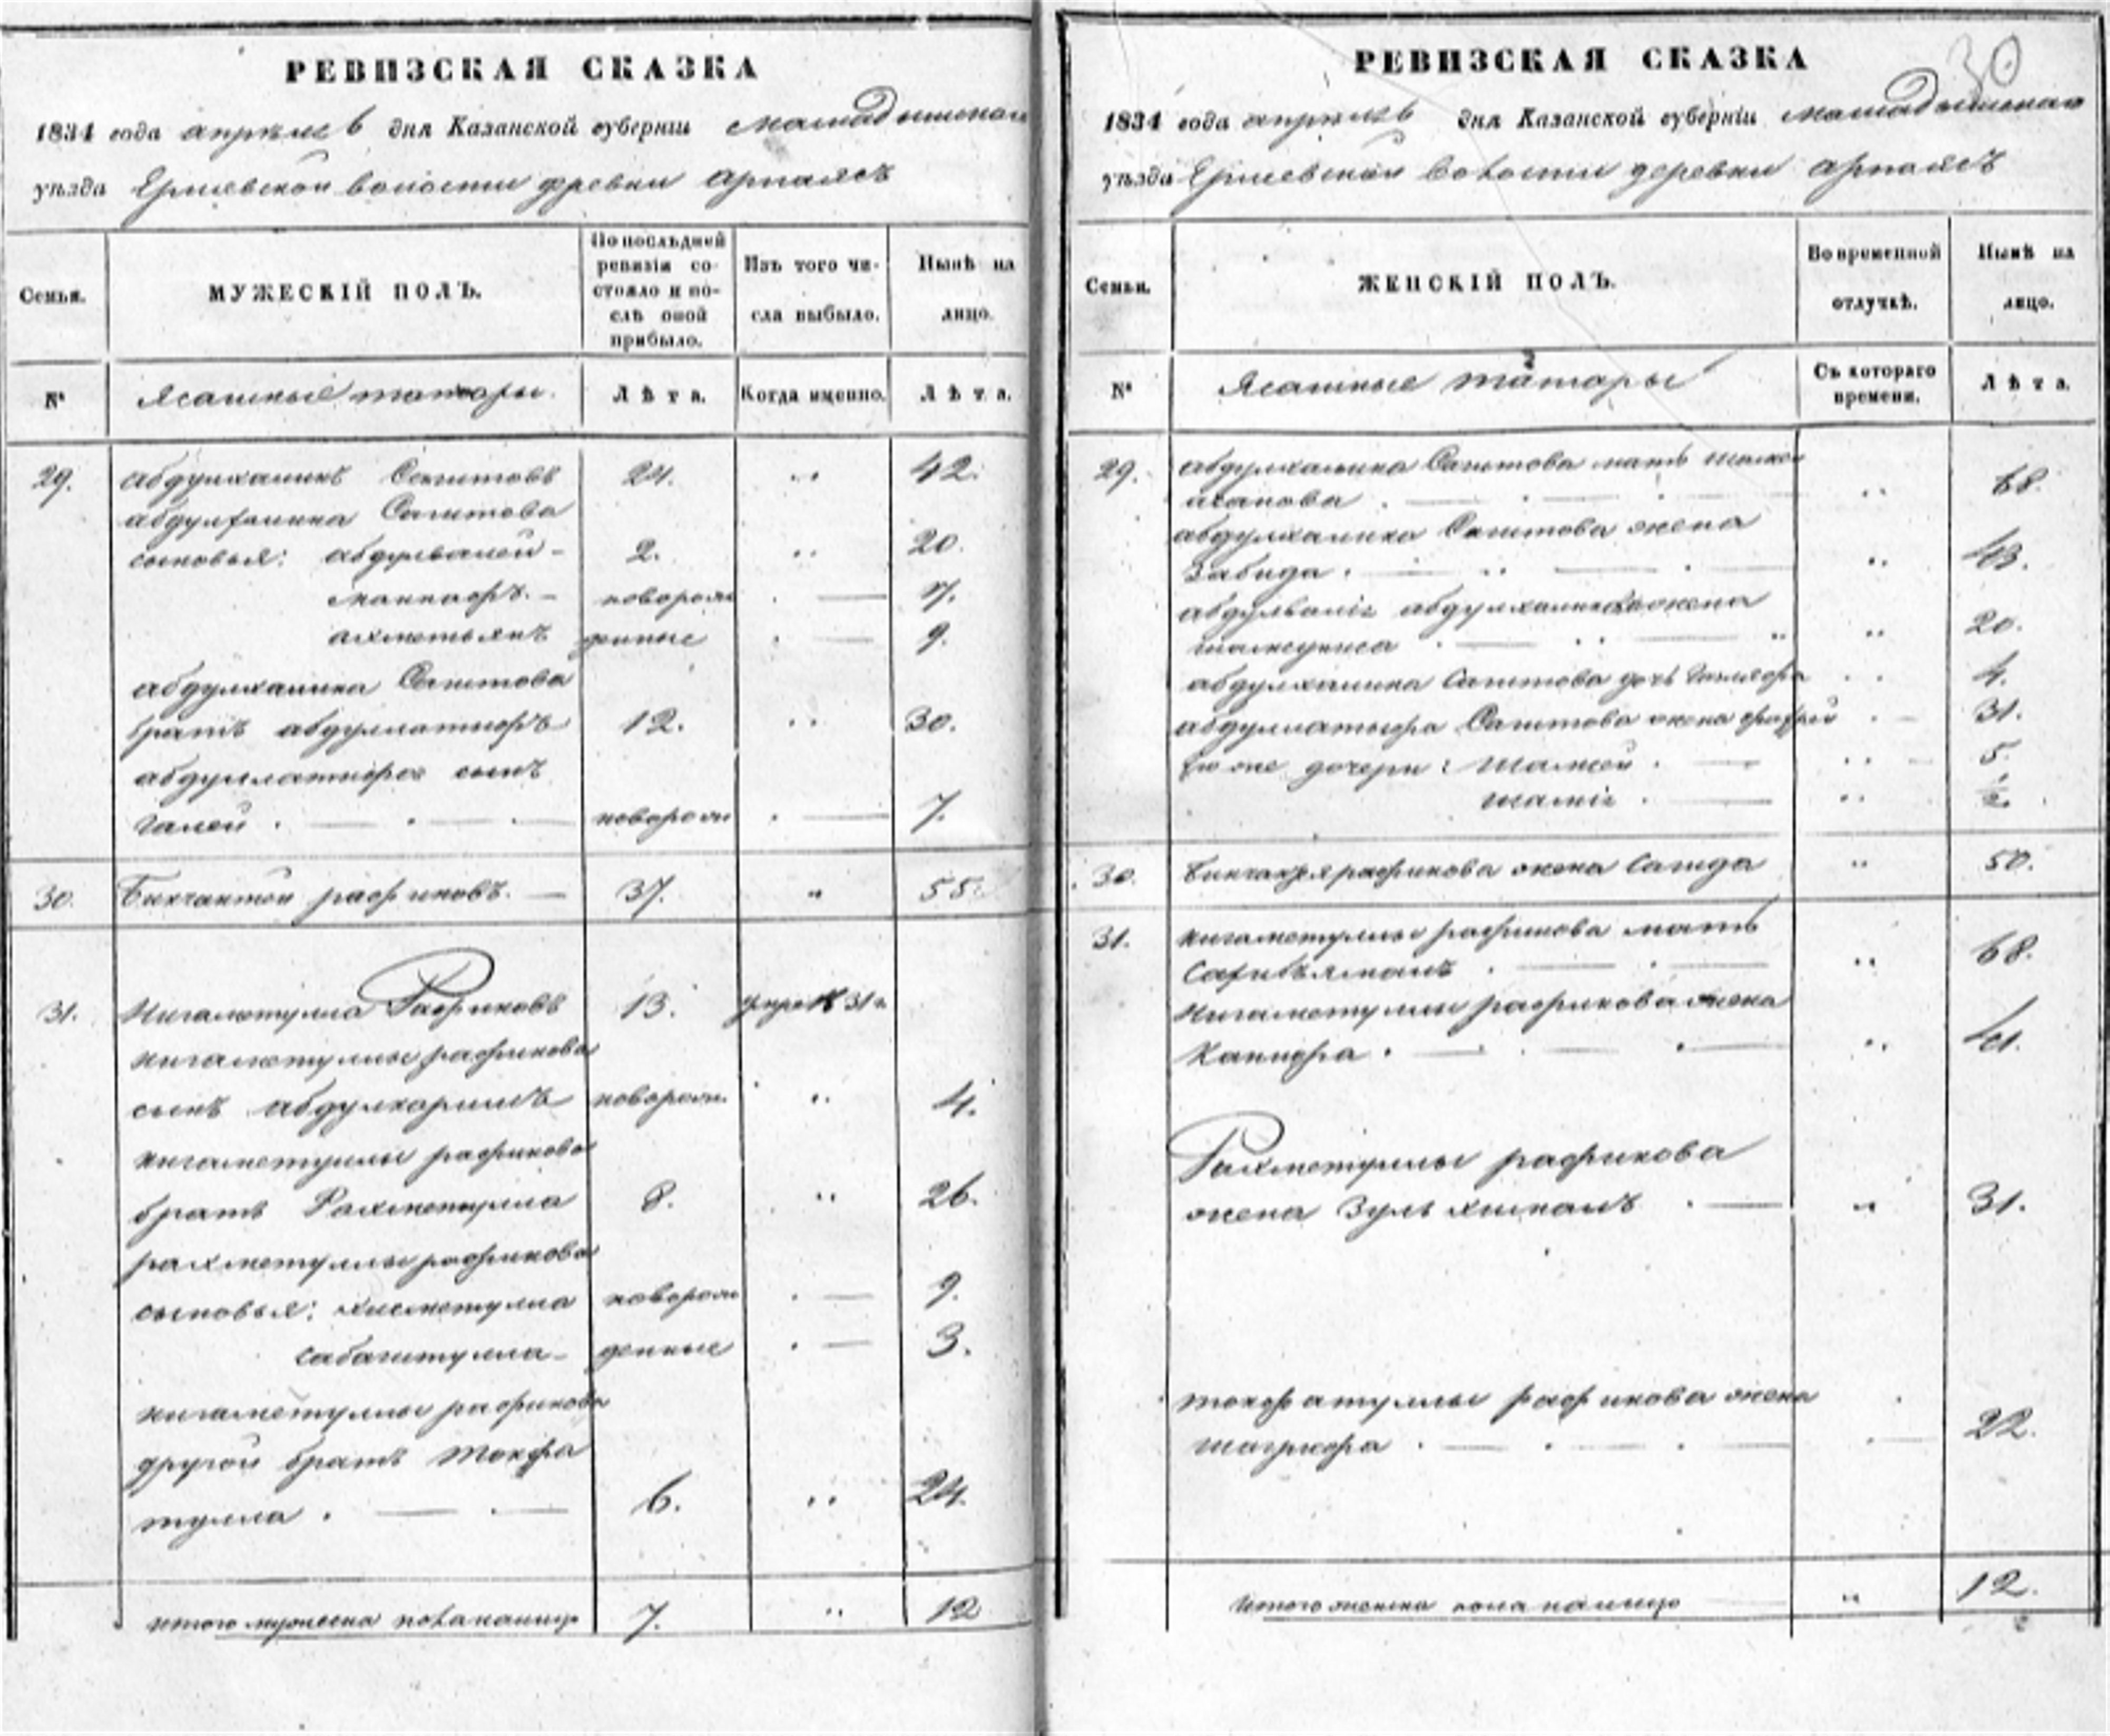 РЕВИЗСКАЯ СКАЗКА
1834 года апреля 6 дня Казанской губерніи мамадышскаго
уѣзда Ершевской волости деревни арпаясъ
Семьи.
МУЖЕСКІЙ ПОЛЪ.
По послѣдней ревизіи состояло и послѣ оной прибыло.
Изъ того числа выбыло.
Нынѣ на лицо.
№
Ясашные татары.
Лѣта.
Когда именно.
Лѣта.
29. абдулхаликъ Сагитовъ 24. " 42.
абдулхалика Сагитова
сыновья: абдулвалей - 2. " 20.
маннафъ. - новорож 7.
ахметьянъ денные 9.
абдулхалика Сагитова
братъ абдуллатифъ 12. " 30.
абдуллатифа сынъ
галей новорож 7.
30. рафиковъ. — 37. " 55.
31. Нигаметулла Рафиковъ 13. 31
нигаметуллы рафикова
сынъ абдулкаримъ новорож. " 4.
нигаметуллы рафикова
братъ Рахметулла 8. " 26.
рахметуллы рафикова
сыновья: хисметулла новорож 9.
сабагитулла - денные 3.
нигаметуллы рафикова
другой братъ токфа
тулла 6. " 24.
итого мужеска пола налицо 7. " 12
30
РЕВИЗСКАЯ СКАЗКА
1834 года апреля 6 дня Казанской губерніи мамадышскаго
уѣзда Ершевской волости деревни арпаясъ
Семьи.
ЖЕНСКІЙ ПОЛЪ.
Во временной отлучкѣ.
Нынѣ на лицо.
№
Ясашные татары
Съ котораго времени.
Лѣта.
29. абдулхалика Сагитова мать
" 68.
абдулхалика Сагитова жена
Забида " 43.
абдулвалія абдулхаликова жена
" 20.
абдулхалика Сагитова дочь 4.
абдуллатифа Сагитова жена 31.
его же дочери: 5.
" ½.
30. рафикова жена Сагида " 50.
31. нигаметуллы рафикова мать
" 68.
нигаметуллы рафикова жена
Ханифа " 41.
Рахметуллы рафикова
жена " 31.
токфатуллы рафикова жена
22.
Итого женска пола налицо " 12.